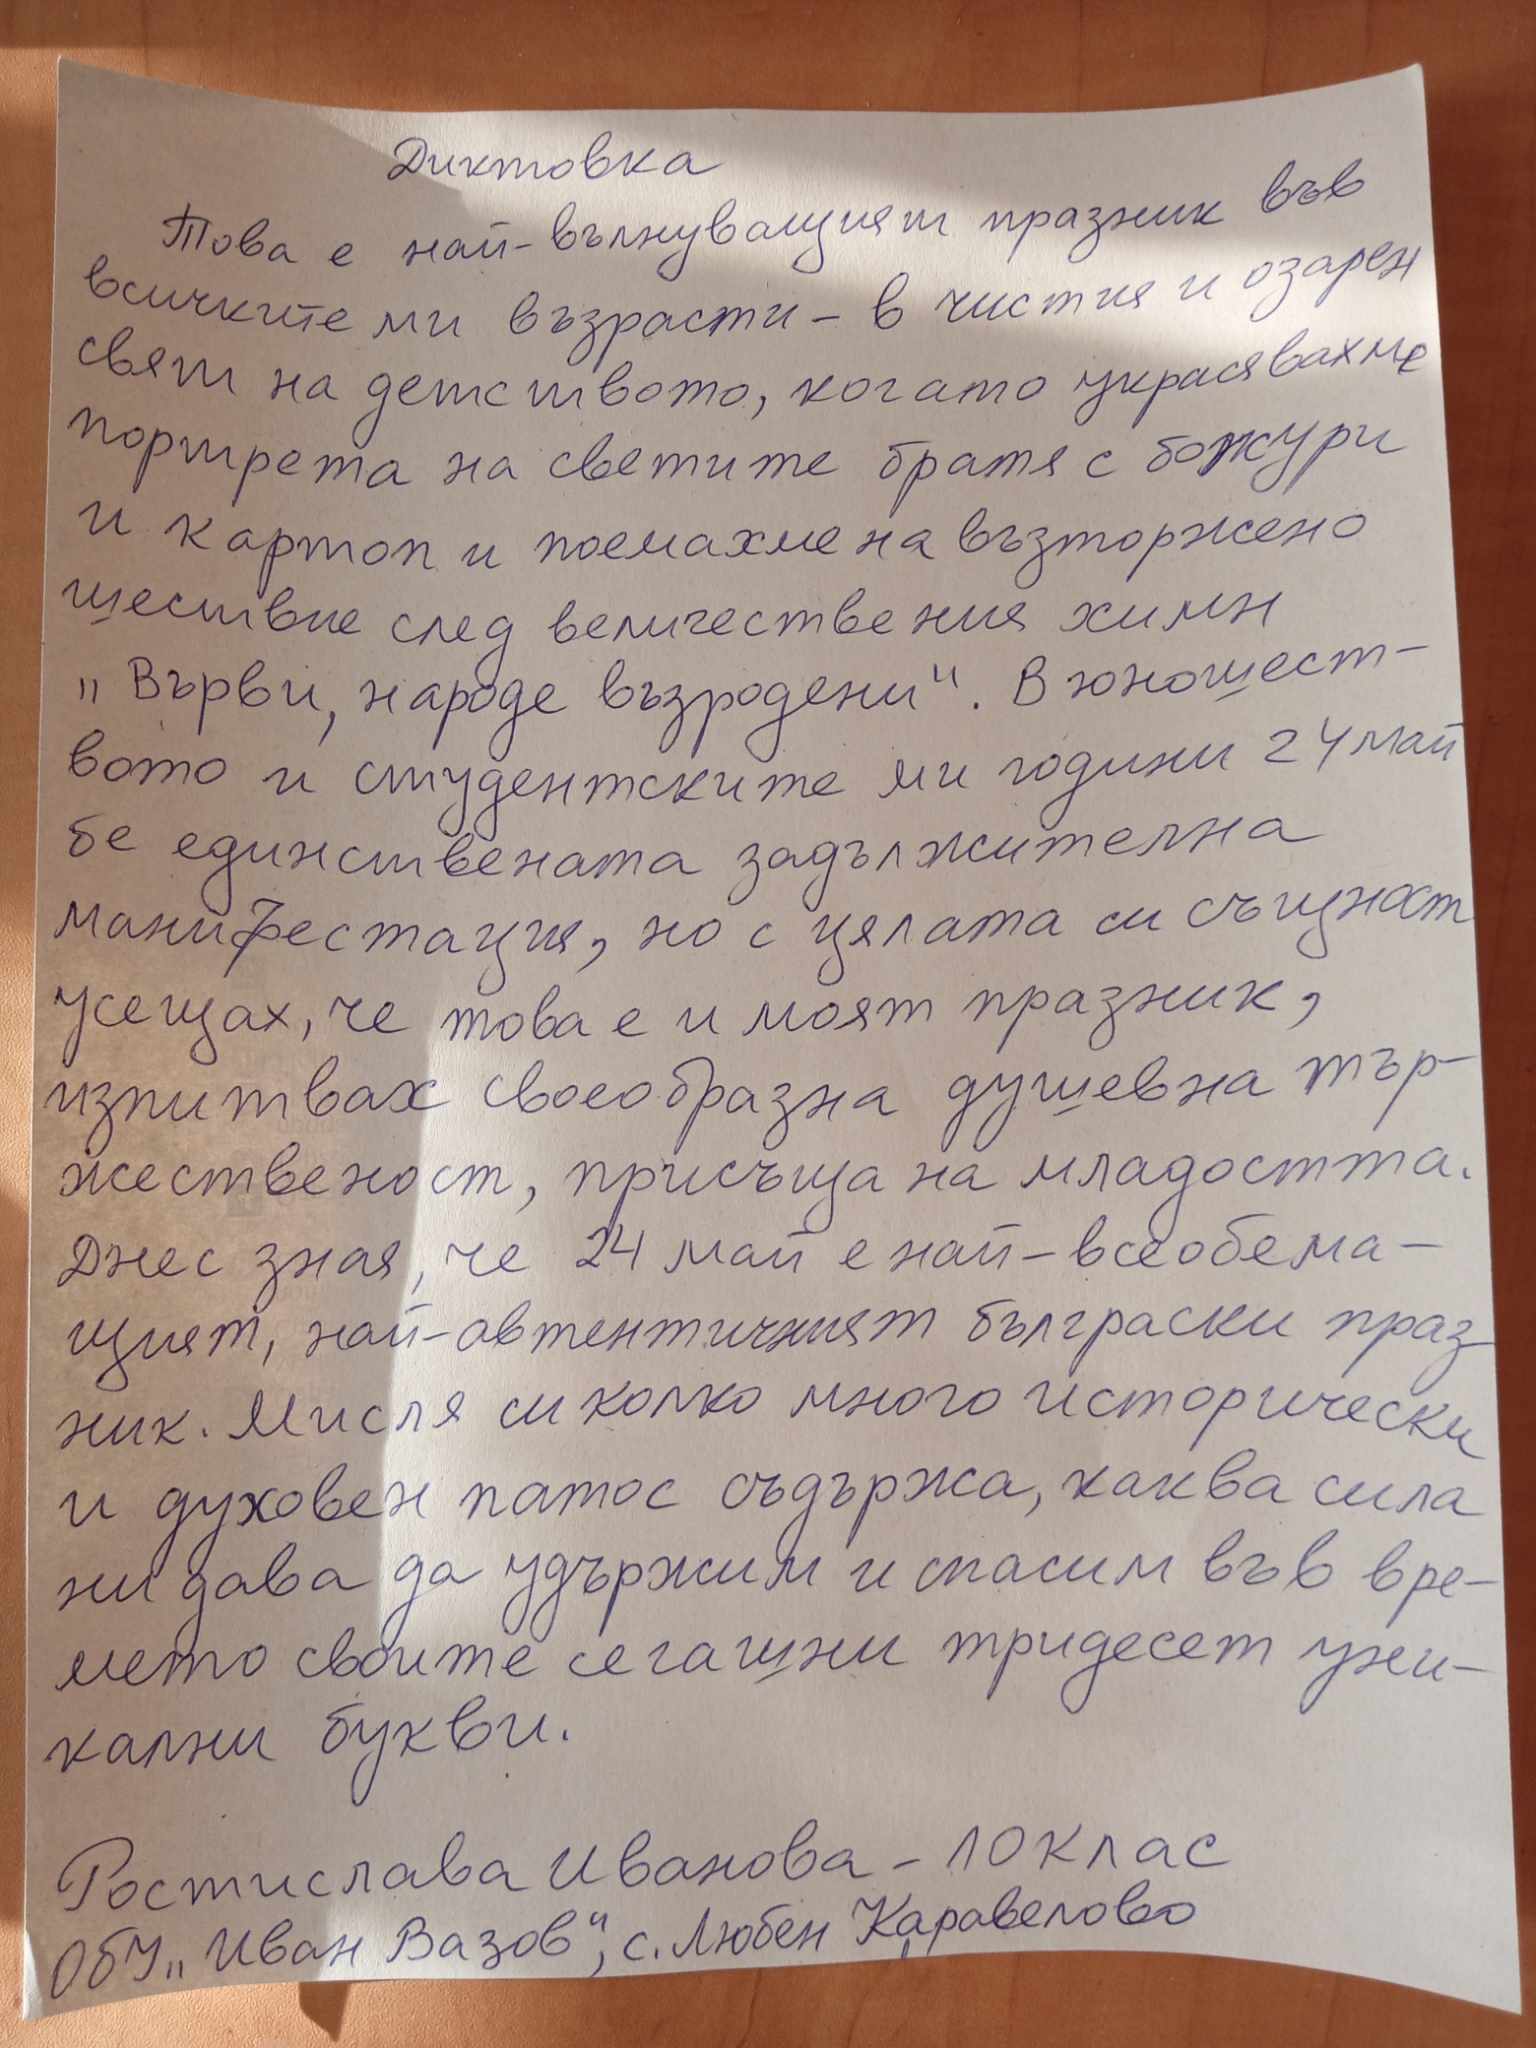 Диктовка
Това е най-вълнуващият празник във
всичките ми възрасти – в чистия и озарен
свят на детството, когато украсявахме
портрета на светите братя с божури
и картоп и поемахме на възторжено
шествие след величествения химн
„Върви, народе възродени". В юношест-
вото и студентските ми години 24 май
бе единствената задължителна
манифестация, но с цялата си същност
усещах, че това е и моят празник,
изпитвах своеобразна душевна тър-
жественост, присъща на младостта.
Днес зная, че 24 май е най-всеобема-
щият, най-автентичният бълграски праз
ник. Мисля си колко много исторически
и духовен патос съдържа, каква сила
ни дава да удържим и спасим във вре-
мето своите сегашни тридесет уни-
кални букви.
Ростислава Иванова – 10 клас
ОбУ „Иван Вазов", с. Любен Каравелово